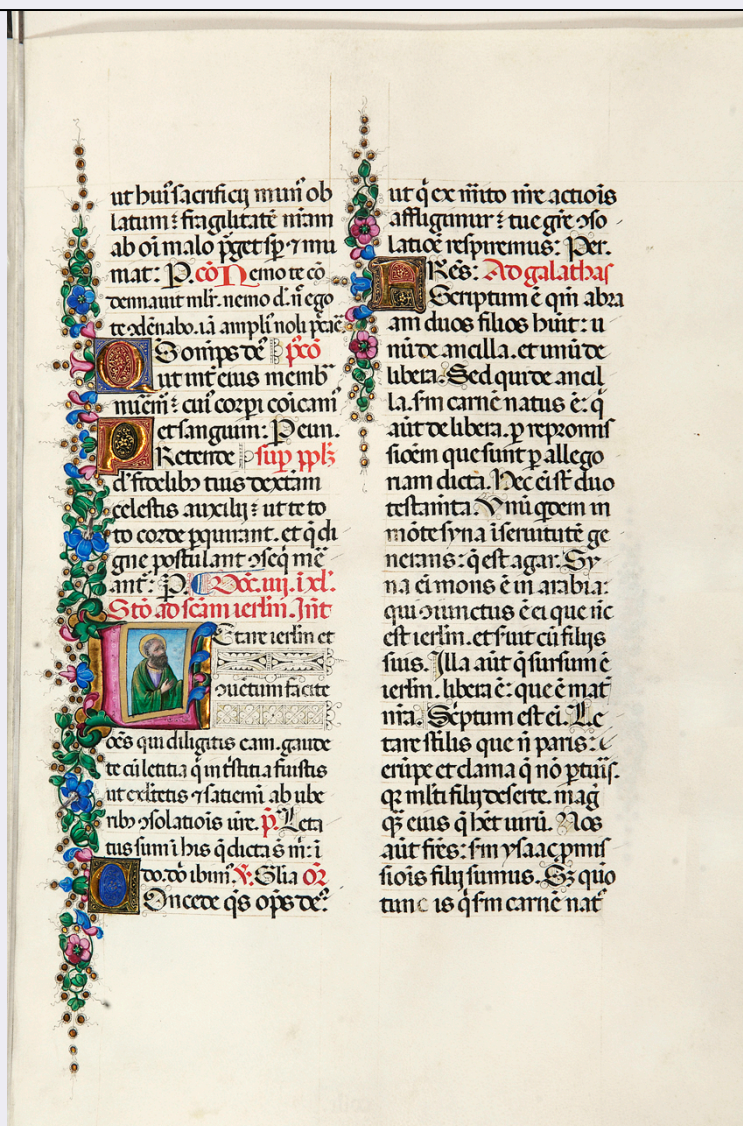 ut huı̄ sacrificij munı̄ ob
latum ⁊ fragilitatē nr̄am
ab oı̄ malo ꝑget sp̄ ⁊ mu
mat: P. cō Nemo te cō
demnauit ml̄r. nemo d.n̄ ego
te ↄdēnabo. iā ampli⁹ noli p̄cāe
Oom̄ps dē p̄cō
ut int̄ eius memb̄
num̄em: cui⁹ corpı̄ cōicam⁹
et sanguin̄: Peun.
PRetende sup̄ pp̄lz
d. fidelib⁹ tuis dextam
celestis auxilij: ut te to
to corde ꝑquirant. et q̄ di
gne postulant ↄseq̄ mē
ant̄: P. Dōc. iiij. i xl.
Stō ad sc̄am ierl̄m. Int̄
LEtare ierl̄m et
ↄuētum facite
oēs qui diligitis eam. gaude
te cū letitia q̄ in t̄stitia fuistis
ut exl̄tetis ⁊ satiem̄i ab ube
rib⁹ ↄsolatiōis ur̄e. p̄. Leta
tus sum ı̄ his q̄ dicta s̄ m̄: ı̄
do. dō ibim⁹. ꝟ. Gl̄ia or̄
COncede q̄s op̄s dē:
ut q̄ ex m̄ito nr̄e actiōis
affligimur: tue gr̄e ↄso
latiōe respiremus: Per.
FRēs: Ad galathas
Scriptum ē qm̄ abra
am duos filios hūit: u
nū de ancilla. et unū de
libera. Sed qui de ancil
la. s̄m carnē natus ē: q̄
aūt de libera. ꝑ repromis
siōem que sunt ꝑ allego
riam dicta. Hec ēı̄ s̄t duo
testam̄ta. Vnū q̄dem in
mōte syna ı̄ seruitutē ge
nerans: q̄ est agar. Sy
na ēı̄ mons ē in arabia:
qui ↄiunctus ē ei que n̄c
est ierl̄m. et s̄uit cū filijs
suis. Illa aūt q̄ sursum ē
ierl̄m. libera ē: que ē mat̄
nr̄a. Sc̄ptum est ēı̄. Le
tare st̄ilis que n̄ paris:
erūpe et clama q̄ nō ꝑtūis.
qꝛ ml̄ti filij deserte. maḡ
qꝫ eius q̄ hēt uirū. Nos
aūt fr̄es: s̄m ysaac ꝓmis
siōis filij sumus. Sꝫ quo
tunc is q̄ s̄m carnē nat⁹